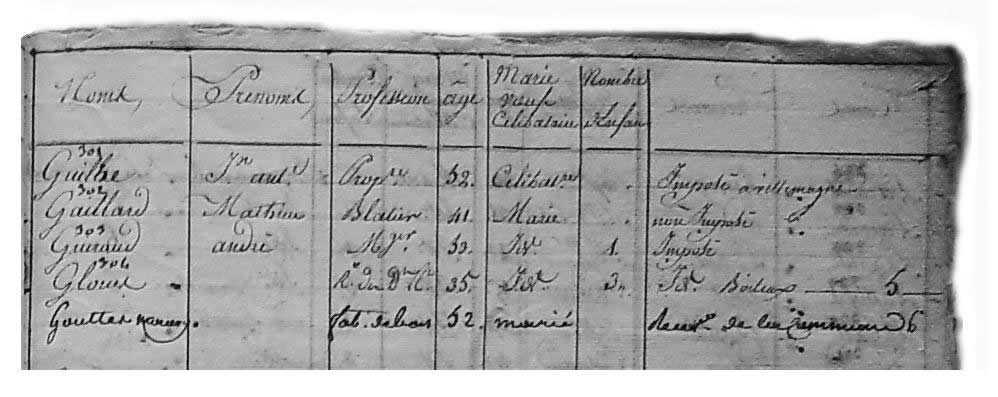 Noms Prénoms Profession âge Marié veuf Celibataire Nombre d'Enfan
301
Guilhe Jn ant.e Prop.re 52. Celibat.re Imposé a villemagne
302
Gaillard Mathieu Blatier 41. Marié non Imposé
303
Guiraud andré M.gr 53. Id. 1. Imposé
304
Gloux 35. Id. 3. Id. 5
Gouttes 52. marié de la Commune 6